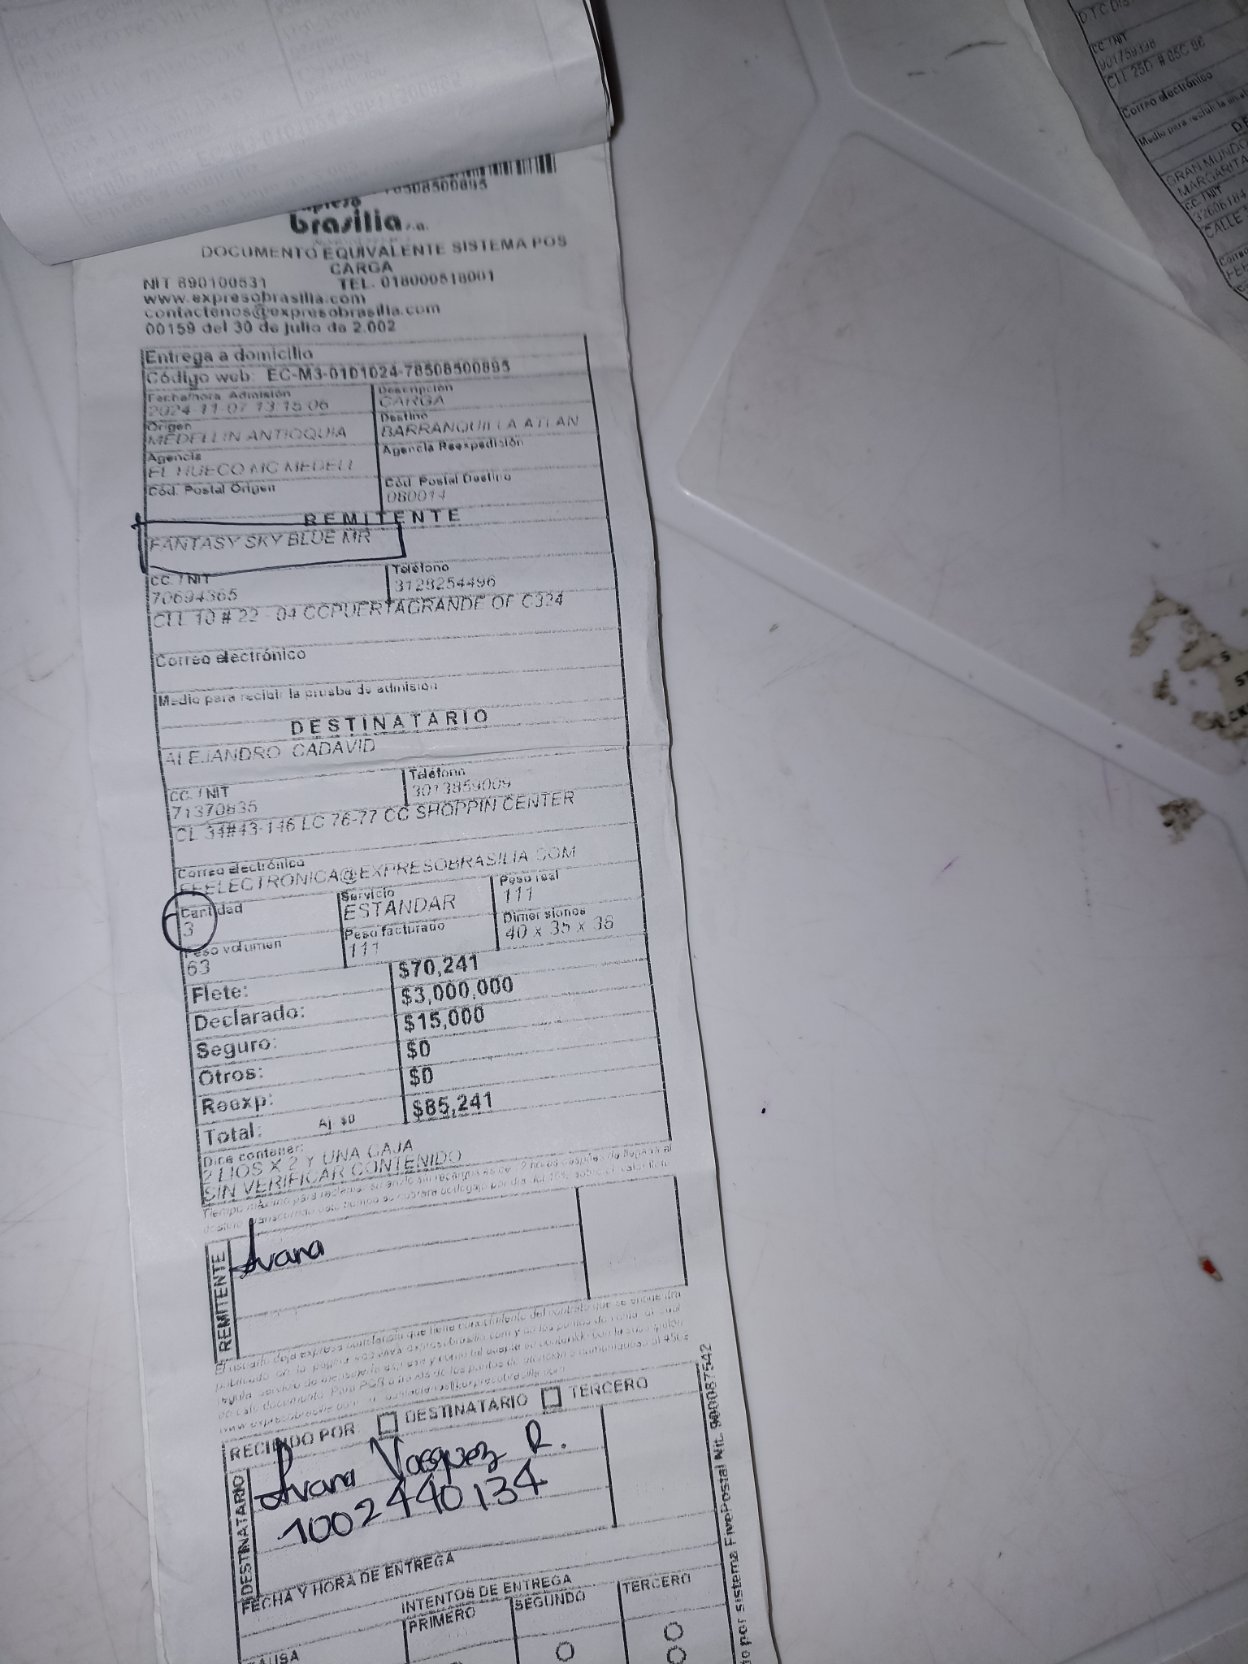 78508500895
expreso
brasilia s.a.
DOCUMENTO EQUIVALENTE SISTEMA POS
CARGA
NIT 890100531 TEL. 018000518001
www.expresobrasilia.com
contactenos@expresobrasilia.com
00159 del 30 de julio de 2.002
Entrega a domicilio
Código web: EC-M3-0101024-78508500895
Fecha/hora Admisión Descripción
2024-11-07 13:15:06 CARGA
Origen Destino
MEDELLIN ANTIOQUIA BARRANQUILLA ATLAN
Agencia Agencia Reexpedición
EL HUECO MC MEDELL
Cód. Postal Origen Cód. Postal Destino
080014
REMITENTE
FANTASY SKY BLUE MR
CC. / NIT Teléfono
70694365 3128254496
CLL 10 # 22 - 04 CCPUERTAGRANDE OF C324
Correo electrónico
Medio para recibir la prueba de admisión
DESTINATARIO
ALEJANDRO CADAVID
CC. / NIT Teléfono
71370835 3013859009
CL 34#43-146 LC 76-77 CC SHOPPIN CENTER
Correo electrónico
FEELECTRONICA@EXPRESOBRASILIA.COM
Cantidad Servicio Peso real
3 ESTANDAR 111
Peso volumen Peso facturado Dimensiones
63 111 40 x 35 x 36
Flete: $70,241
Declarado: $3,000,000
Seguro: $15,000
Otros: $0
Reexp: $0
Total: Aj $0 $85,241
Dice contener:
2 LIOS X 2 Y UNA CAJA
SIN VERIFICAR CONTENIDO
REMITENTE
Ivana
RECIBIDO POR DESTINATARIO TERCERO
DESTINATARIO
Ivana Vasquez R.
1002440134
FECHA Y HORA DE ENTREGA
INTENTOS DE ENTREGA
PRIMERO SEGUNDO TERCERO
por sistema FivePostal Nit. 900087542
CC / NIT
CLL 25D # 85C 86
Correo electrónico
GRAN MUNDO
MARGARITA
CC. / NIT
CALLE